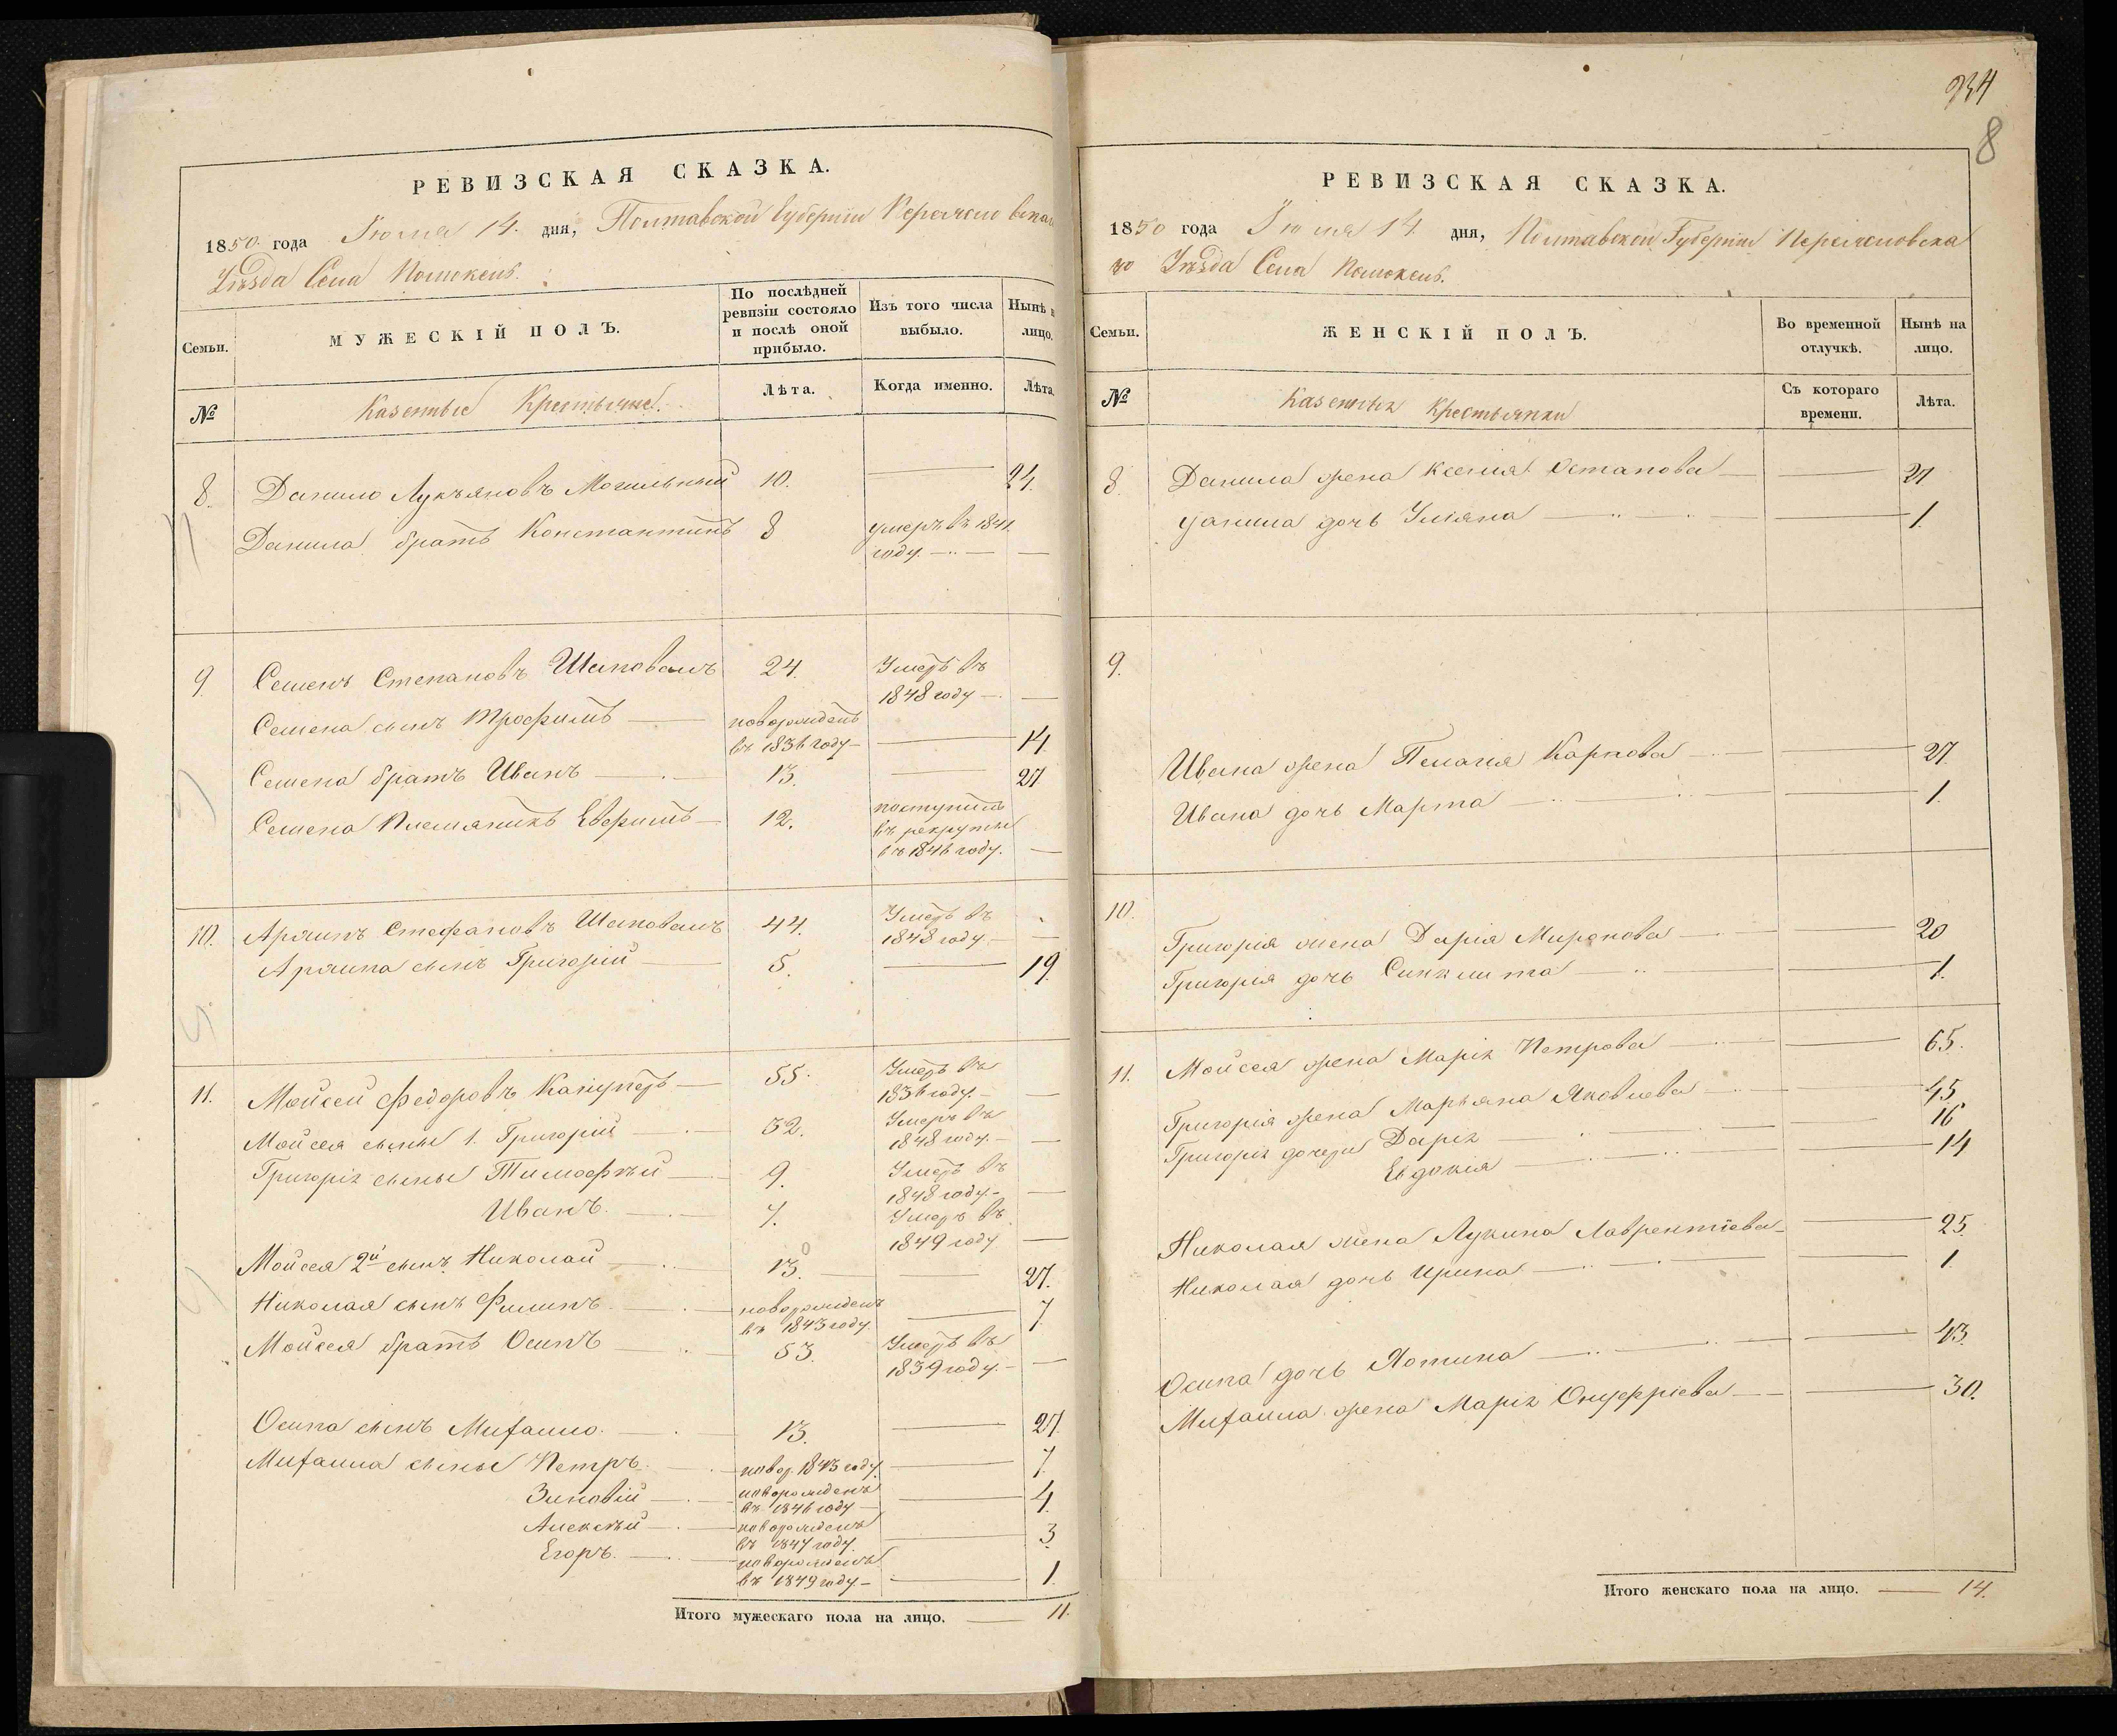 РЕВИЗСКАЯ СКАЗКА.
1850 года Іюня 14. дня, Полтавской Губерніи Переяслов
Уѣзда Села Помокель.
Семьи.
МУЖЕСКІЙ ПОЛЪ.
По послѣдней ревизіи состояло и послѣ оной прибыло.
Изъ того числа выбыло.
Нынѣ н лицо.
№
Казенные Крестьяне.
Лѣта.
Когда именно.
Лѣта.
8. Данило Лукьяновъ Могильный 10. — 24.
Данила братъ Константинъ 8 умеръ въ 1841
году. —
9 Семенъ Степановъ Шаповалъ 24. Умеръ въ
1848 году — —
Семена сынъ Трофимъ — новорожденъ
въ 1836 году — — 14
Семена братъ Иванъ — 13. — 27
Семена Племяникъ Евфимъ — 12. поступилъ
въ рекруты
въ 1846 году. —
10. Степановъ Шаповалъ 44. Умеръ въ
1848 году — —
сынъ Григорій — 5. — 19.
11. Мойсей Федоровъ — 55. Умеръ въ
1836 году. — —
Мойсея сыны 1. Григорій — 32. Умеръ въ
1848 году. — —
Григорія сыны Тимофѣй — 9. Умеръ въ
1848 году. — —
Иванъ. — 7. Умеръ въ
1849 году —
Мойсея 2й сынъ Николай — 13. — 27.
Николая сынъ Филипъ. — новорожденъ — 7
въ 1843 году.
Мойсея братъ Осипъ — 53. Умеръ въ
1839 году. — —
Осипа сынъ Михайло. — 13. — 27
Михаила сыны Петръ. — новор. 1843 году — 7
Зиновій — новорожденъ
въ 1846 году — — 4.
Алексѣй — новорожденъ
въ 1847 году. — 3
Егоръ. — новорожденъ
въ 1849 году — — 1.
Итого мужескаго пола на лицо. — 11.
934
8
РЕВИЗСКАЯ СКАЗКА.
1850 года Іюня 14. дня, Полтавской Губерніи Переясловска
го Уѣзда Села Помокель.
Семьи.
ЖЕНСКІЙ ПОЛЪ.
Во временной отлучкѣ.
Нынѣ на лицо.
№
Казенныя Крестьянки
Съ котораго времени.
Лѣта.
8. Данила жена Ксенія Остапова — — 27
Данила дочь Уліяна — — 1.
9.
Ивана жена Пелагія Карпова — — 27
Ивана дочь Марта — — 1.
10.
Григорія жена Дарія Миронова — — 20
Григорія дочь Синклита — — 1.
11. Мойсея жена Марія Петрова — — 65.
Григорія жена Марьяна Яковлева — — 45
Григорія дочери Дарія — — 16
Евдокія — — 14
Николая жена Лукина Лаврентіева — — 25.
Николая дочь Ирина — — 1
Осипа дочь — — 43.
Михаила жена Марія Онуфріева — — 30.
Итого женскаго пола на лицо. — 14.